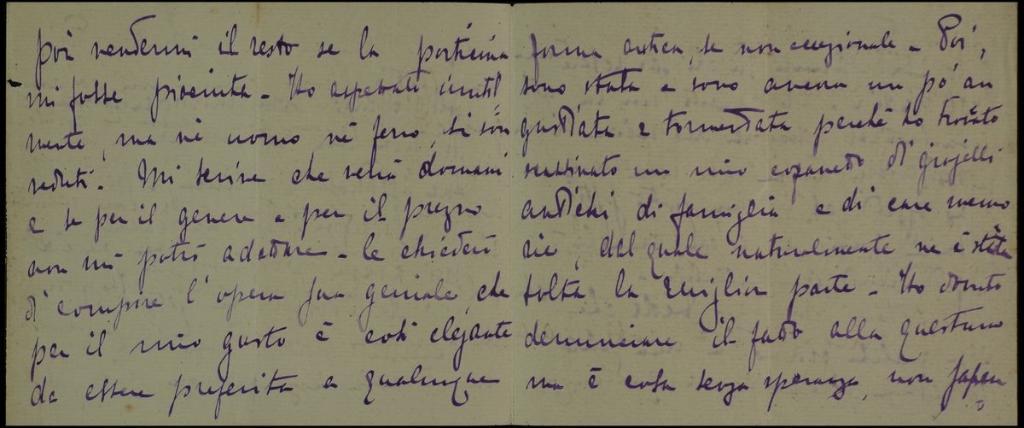 poi vendermi il resto se la porticina
mi fosse piaciuta - Ho aspettato inutil
mente, ma nè uomo nè ferro si son
veduti. Mi scrive che verrà domani
e se per il genere e per il prezzo
non mi potrò adattare - le chiederò
di compire l'opera sua geniale che
per il mio gusto è così elegante
da essere preferita a qualunque
forma antica, se non eccezionale - Poi,
sono stata e sono ancora un po' an
gustiata e tormentata perchè ho trovato
un mio cofanetto di giojelli
antichi di famiglia e di care memo
rie, del quale naturalmente ne è stata
tolta la miglior parte - Ho dovuto
denunciare il fatto alla questura
ma è cosa senza speranza, non sapen